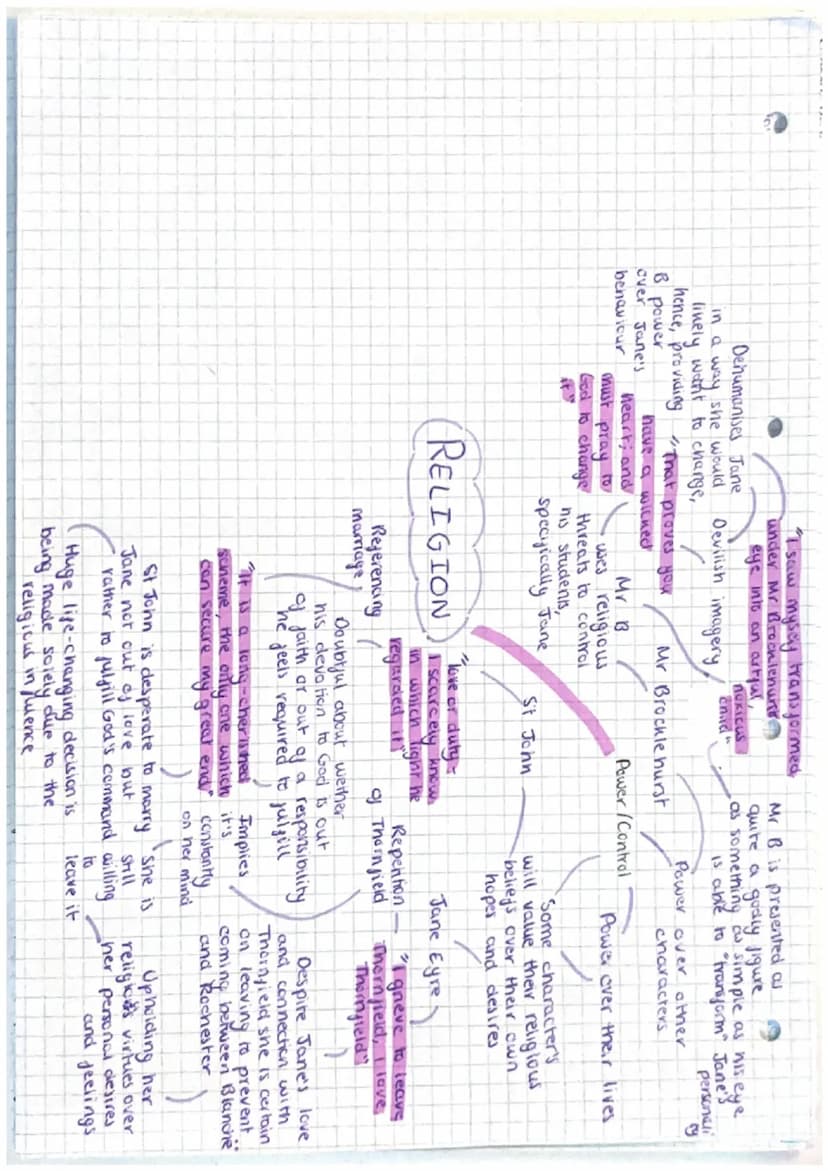 RELIGION
Power/Control
Power over other
characters
Mr Brocklehurst
"I saw myself transformed
under Mr Brocklehurst
eye into an artful,
noxious
child"
Mr B is presented as
quite a godly figure
as something as simple as his eye
is able to "transform" Jane's
personality
Devilish imagery
Dehumanises Jane
in a way she would
likely want to change,
hence, providing
B power
over Jane's
behaviour
"That proves you
have a wicked
heart; and
must pray to
God to change
it"
Mr B
uses religious
threats to control
his students,
specifically Jane
Power over their lives
Some characters
will value their religious
beliefs over their own
hopes and desires
St John
"love or duty -
I scarcely know
in which light he
regarded it"
Referencing
marriage
Doubtful about wether
his devotion to God is out
of faith or out of a responsibility
he feels required to fulfill
"It is a long-cherished
scheme, the only one which
can secure my great end"
Implies
it's
constantly
on her mind
St John is desperate to marry
Jane not out of love but
rather to fulfill God's command
Huge life-changing decision is
being made solely due to the
religious influence
Jane Eyre
"I grieve to leave
Thornfield, I love
Thornfield"
Repetition
of Thornfield
Despite Jane's love
and connection with
Thornfield she is certain
on leaving to prevent
coming between Blanche
and Rochester
She is
still
willing
to
leave it
Upholding her
religious virtues over
her personal desires
and feelings